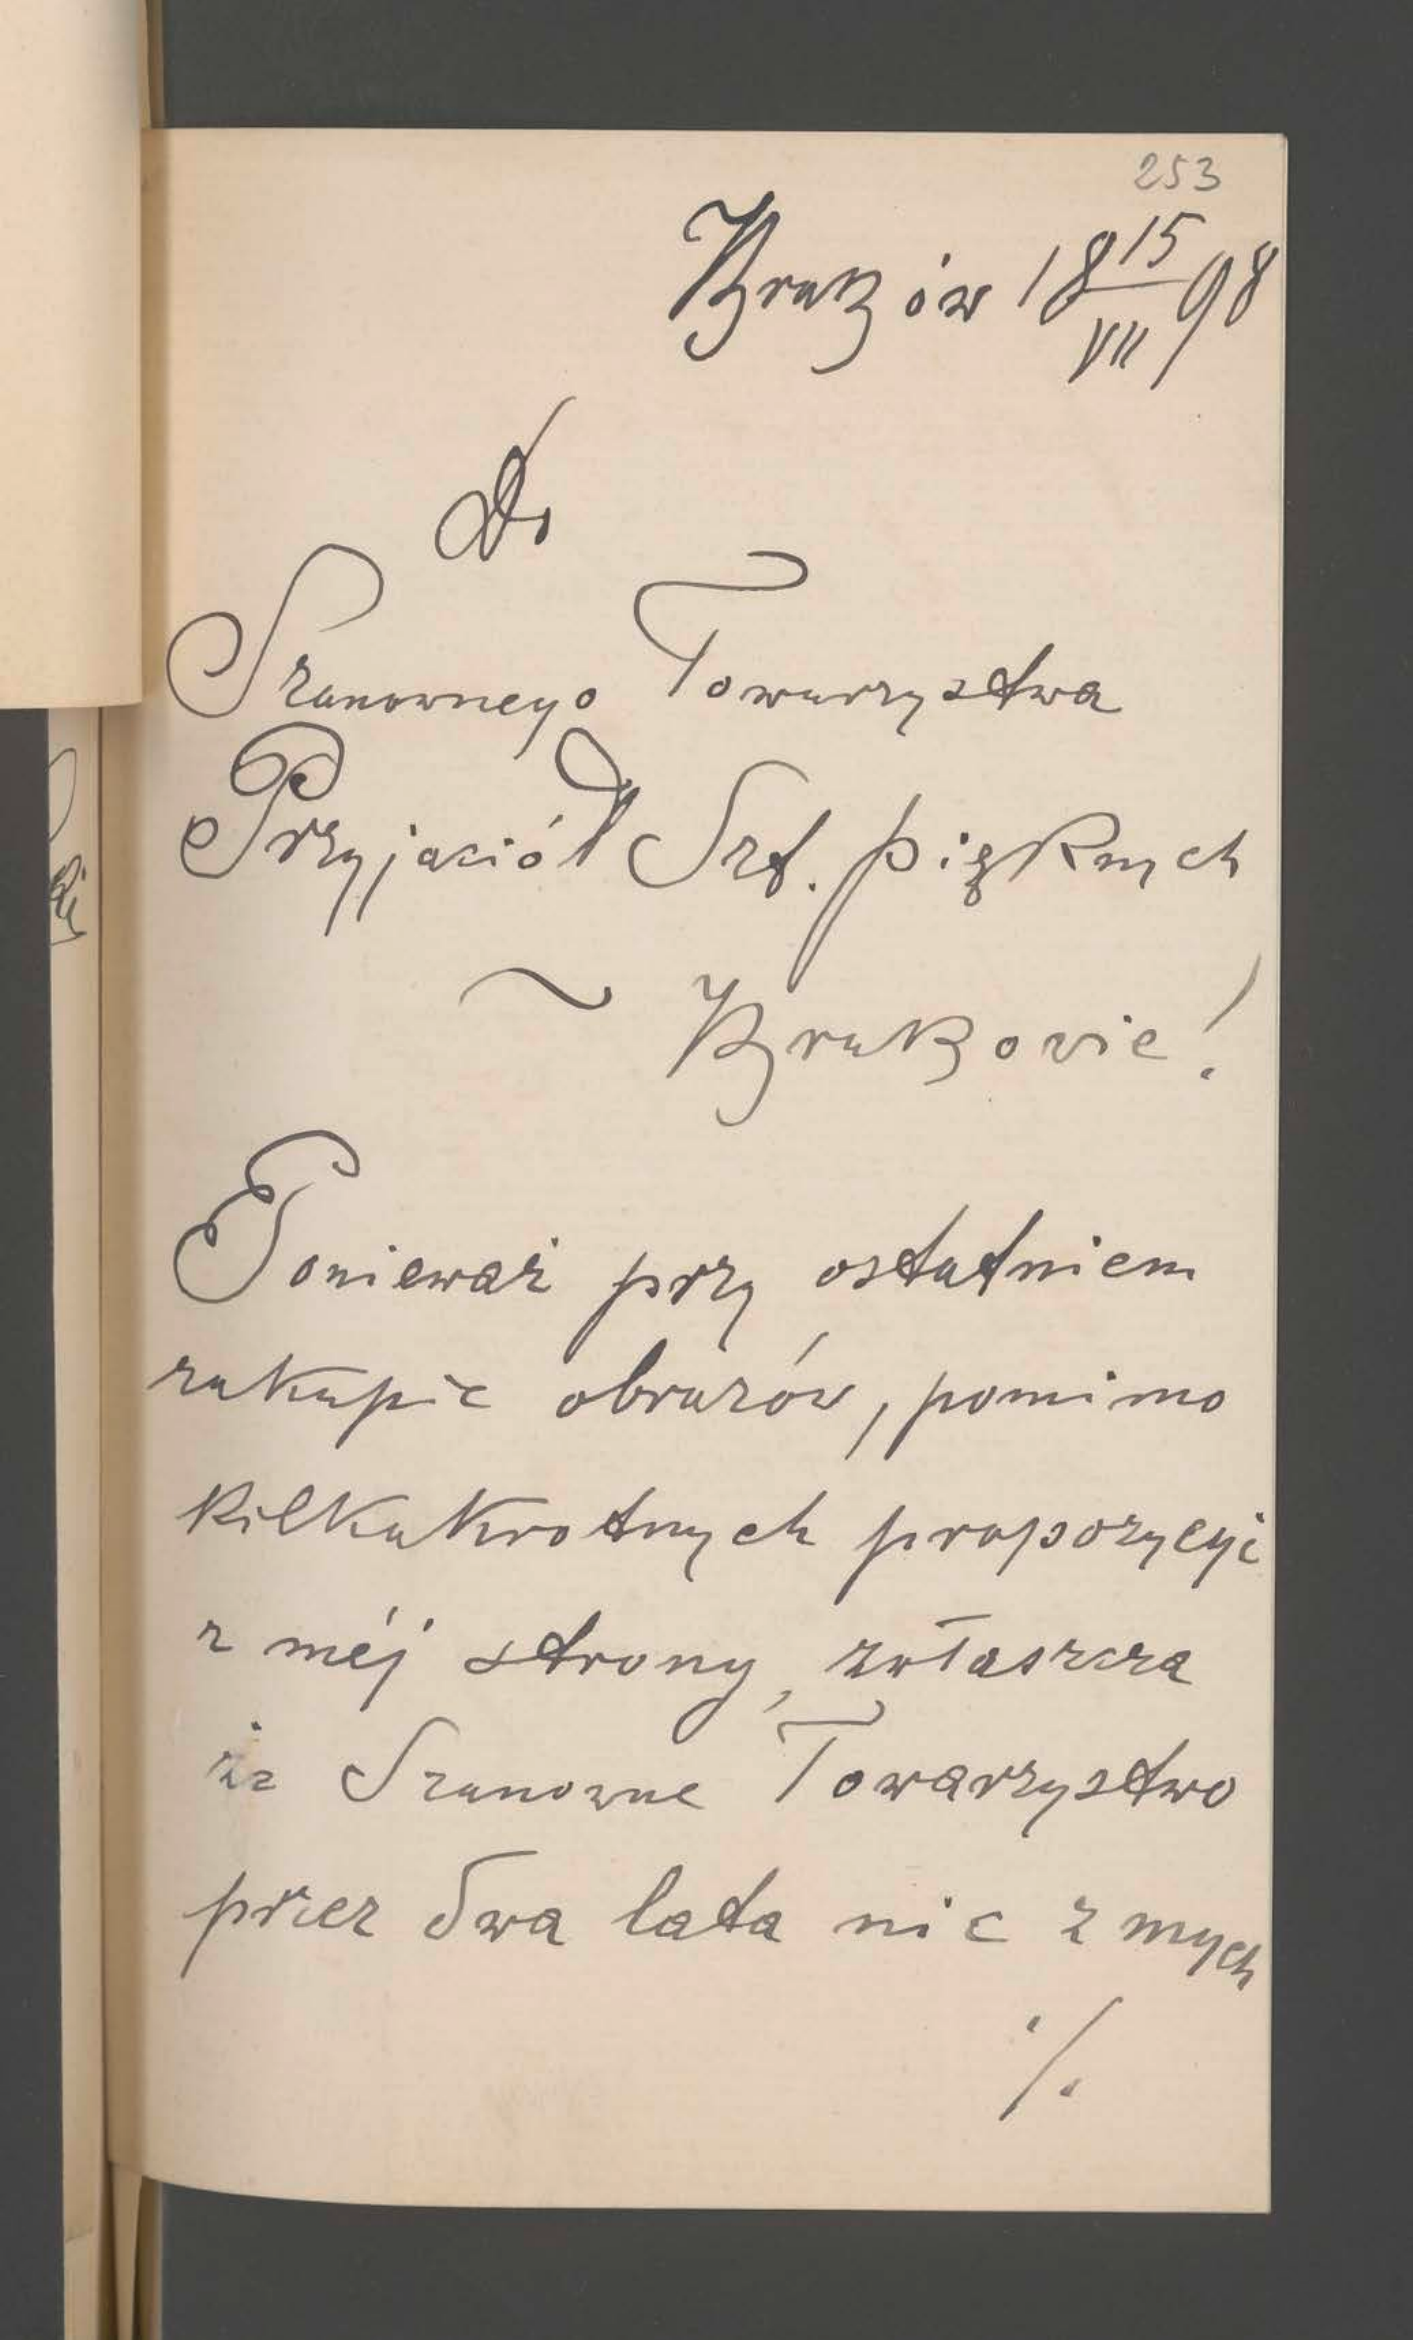 253
Kraków 18 15/VII 98
Do
Szanownego Towarzystwa
Przyjaciół Szt. pięknych
w Krakowie!
Ponieważ przy ostatniem
zakupie obrazów, pomimo
kilkakrotnych propozycyi
z méj strony, zwłaszcza
iż Szanowne Towarzystwo
przez dwa lata nic z mych
./.